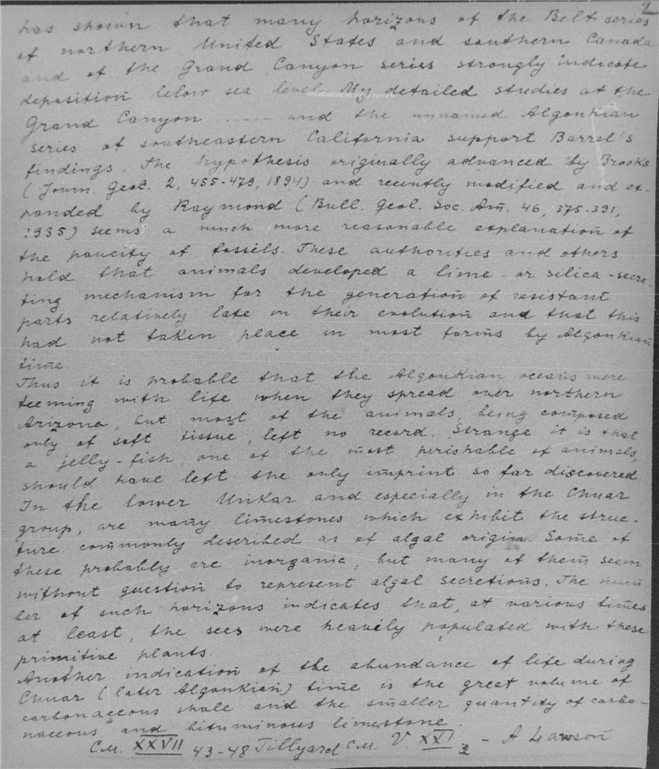 2
has shown that many horizons of the Belt series
of northern United States and southern Canada
and of the Grand Canyon series strongly indicate
deposition below sea level. My detailed studies at the
Grand Canyon ...... and the unnamed Algonkian
series of southeastern California support Barrel's
findings. The hypothesis originally advanced by Brooks
(Journ. Geol. 2, 455-479, 1894) and recently modified and ex-
panded by Raymond (Bull. Geol. Soc. Am. 46, 375-391,
1935) seems a much more reasonable explanation of
the paucity of fossils. These authorities and others
hold that animals developed a lime- or silica-secre-
ting mechanism for the generation of resistant
parts relatively late in their evolution and that this
had not taken place in most forms by Algonkian
time.
Thus it is probable that the Algonkian oceans were
teeming with life when they spread over northern
Arizona, but most of the animals, being composed
only of soft tissue, left no record. Strange it is that
a jelly-fish, one of the most perishable of animals,
should have left the only imprint so far discovered.
In the lower Unkar and especially in the Chuar
group, are many limestones which exhibit the struc-
ture commonly described as of algal origin. Some of
these probably are inorganic, but many of them seem
without question to represent algal secretions. The num
ber of such horizons indicates that, at various times
at least, the sees were heavily populated with these
primitive plants.
Another indication of the abundance of life during
Chuar (later Algonkian) time is the great volume of
carbonaceous shale and the smaller quantity of carbo-
naceous and bituminous limestone.
См. XXVII 43-48 Tillyard См. V. XXI - A Lawson